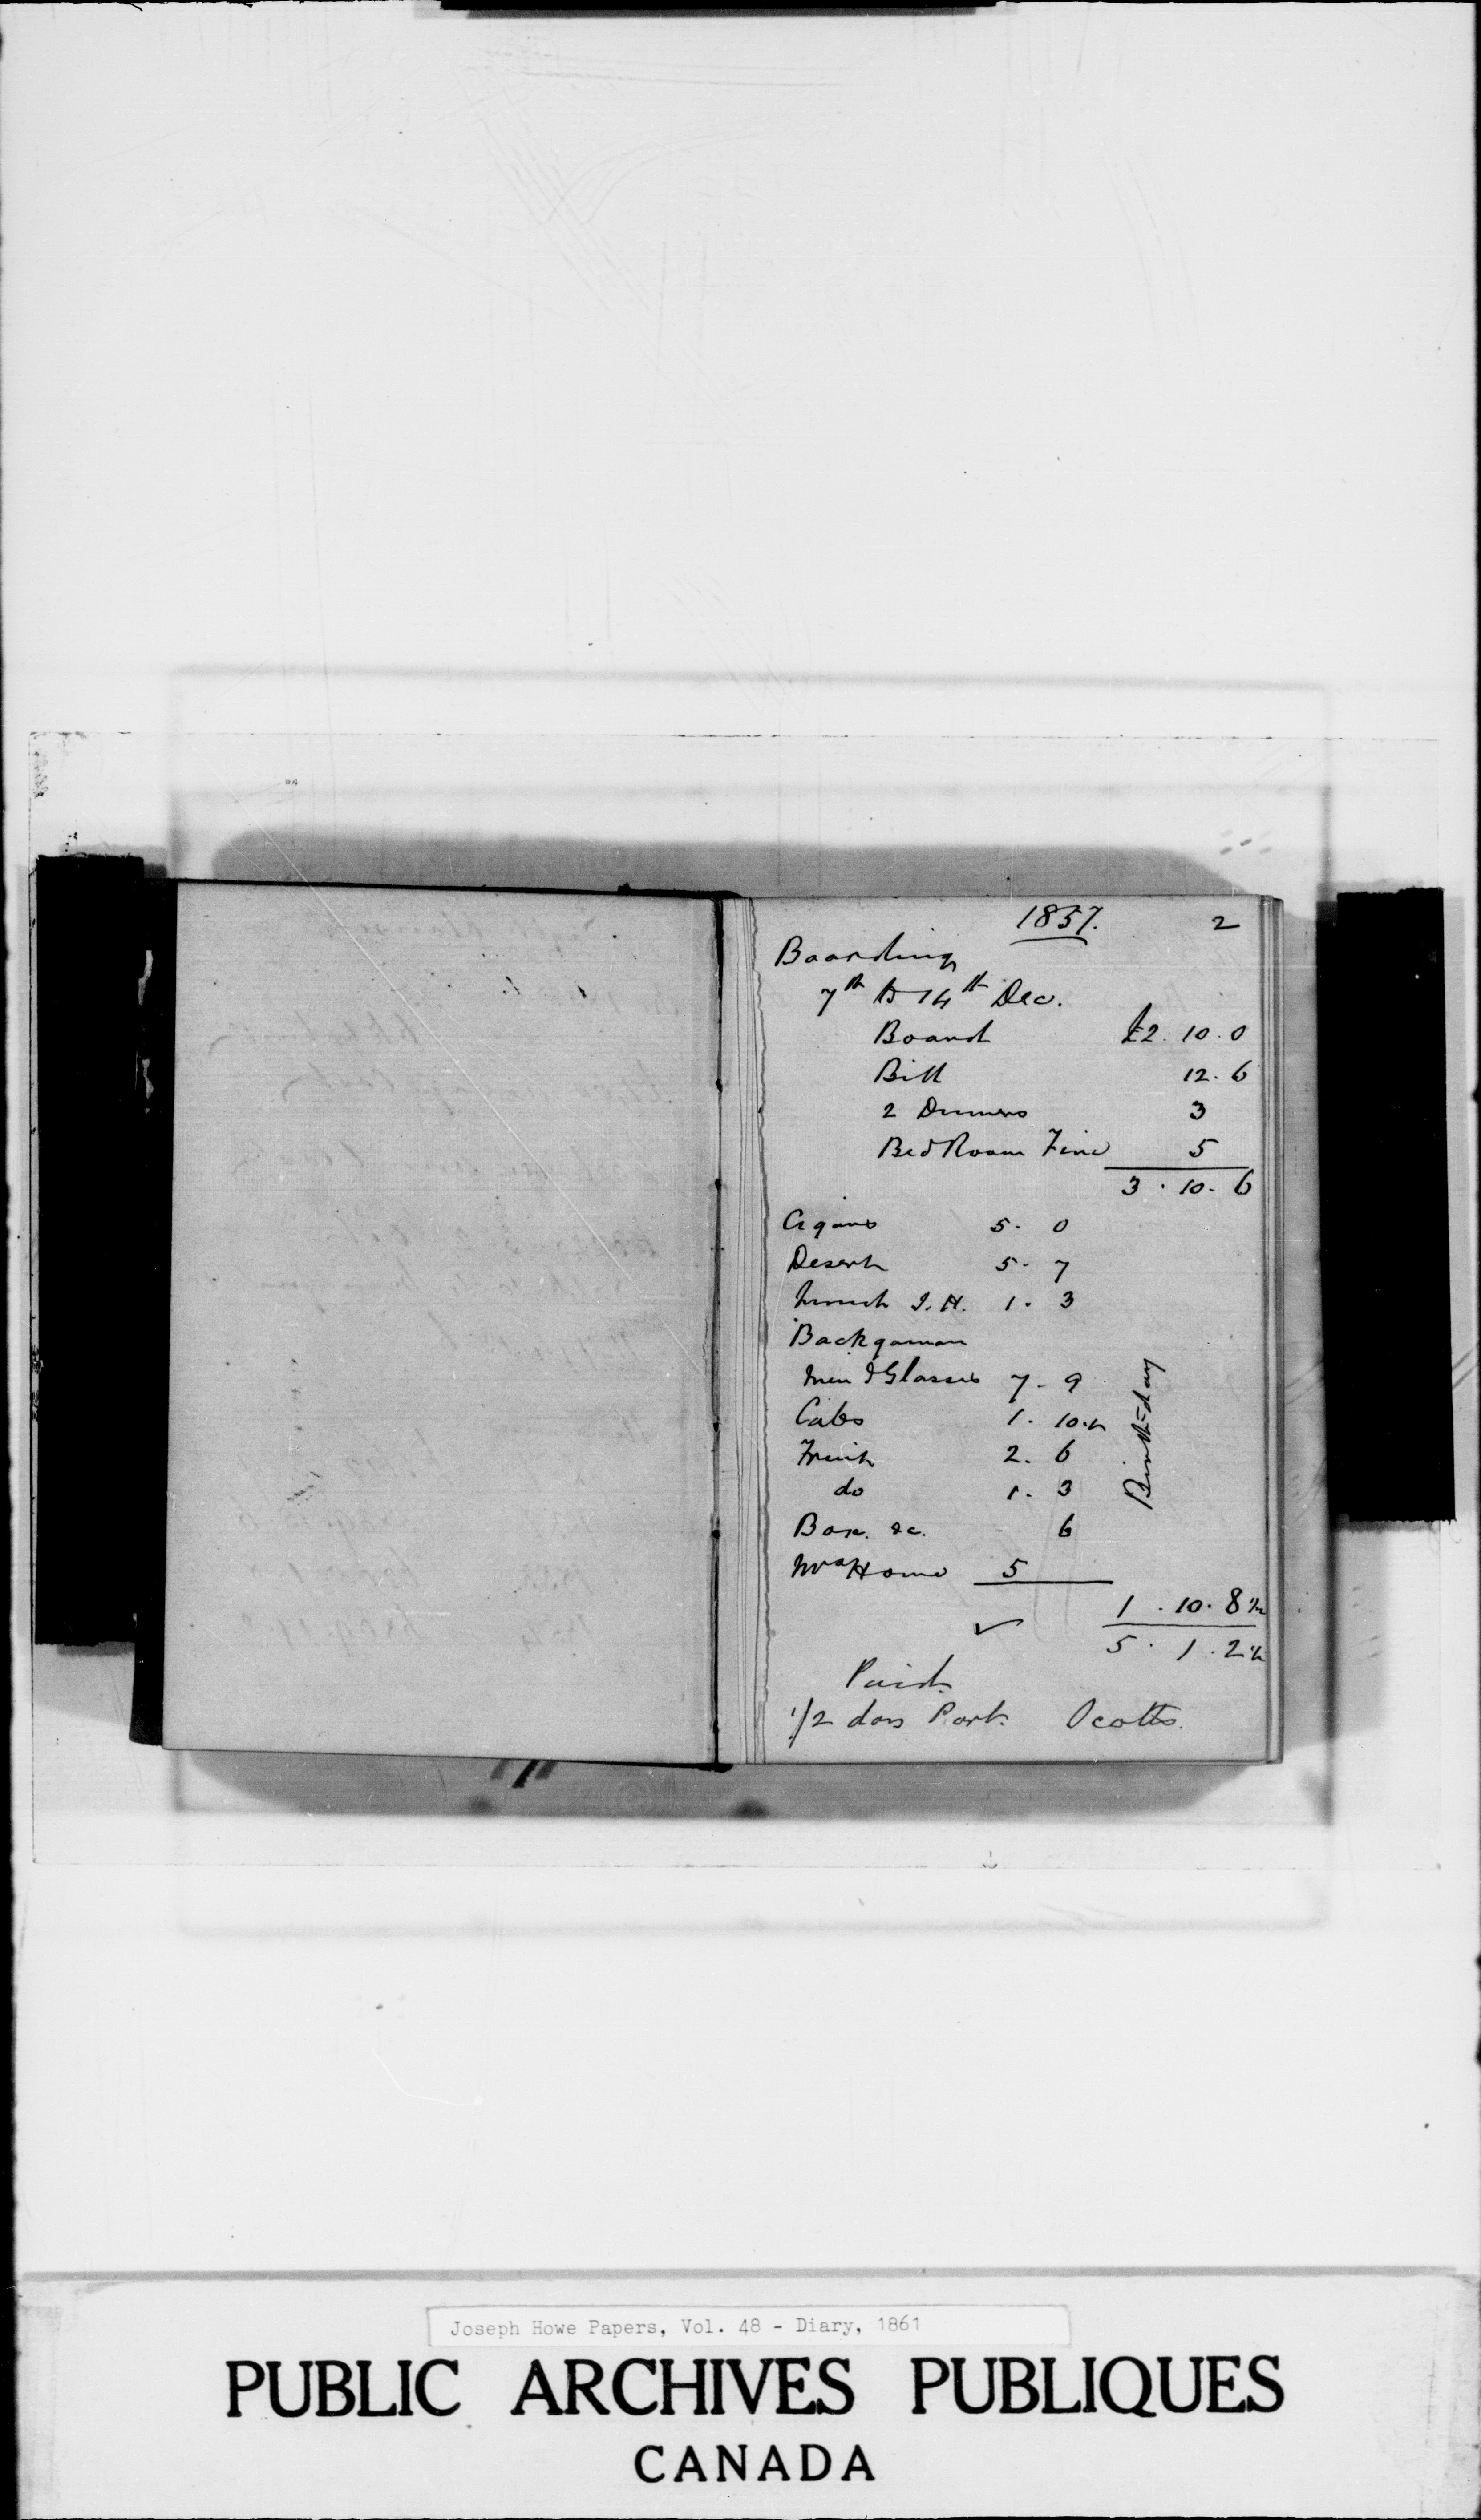 1857.
2
Boarding
7th to 14th Dec.
Board £2. 10. 0
Bill 12. 6
2 Dinners 3
Bed Room Fire 5
3 . 10. 6
Cigars 5. 0
Desert 5. 7
Lunch J. H. 1. 3
Backgaman
men & Glasses 7. 9
Cabs 1. 10½
Fruit 2. 6
do 1. 3
Box. &c. 6
Mrs Howe 5
Birth=day
1 . 10. 8½
5 . 1 . 2½
Paid.
1/2 doz Port. Scotts.
Joseph Howe Papers, Vol. 48 - Diary, 1861
PUBLIC ARCHIVES PUBLIQUES
CANADA